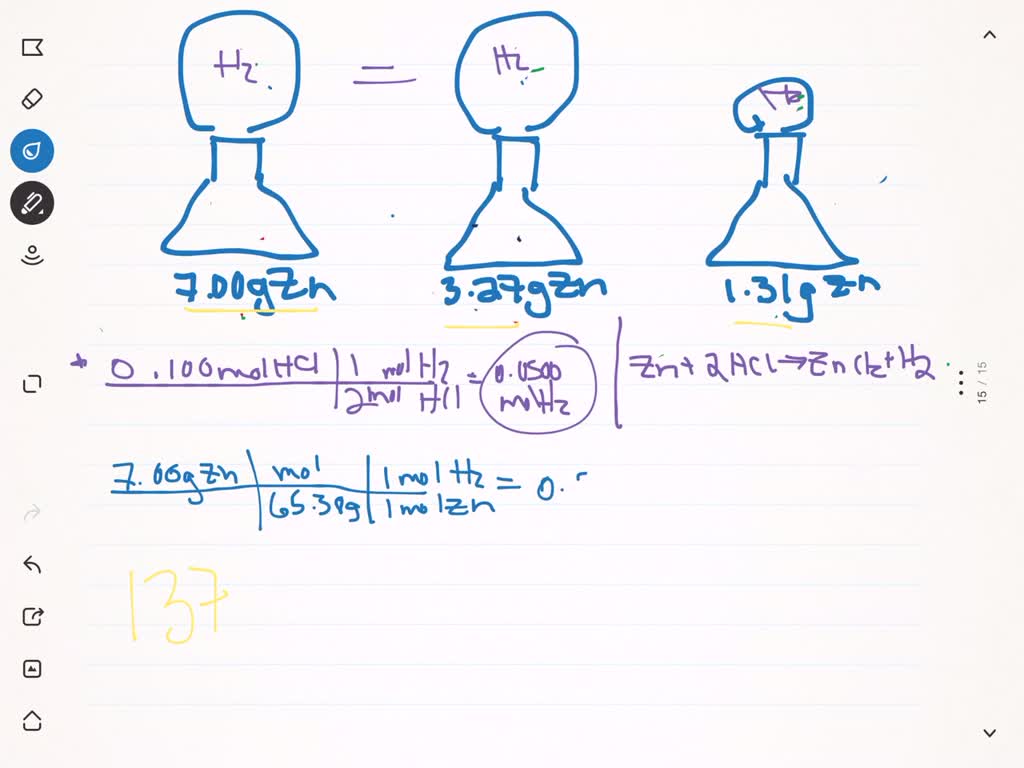 H₂ = H₂ H₂
7.00gZn 3.27gZn 1.31gZn
* 0.100molHCl | 1 mol H₂ / 2mol HCl = 0.0500 molH₂ | Zn + 2HCl → ZnCl₂ + H₂
15 / 15
7.00gZn | mol / 65.38g | 1molH₂ / 1molZn = 0.
137